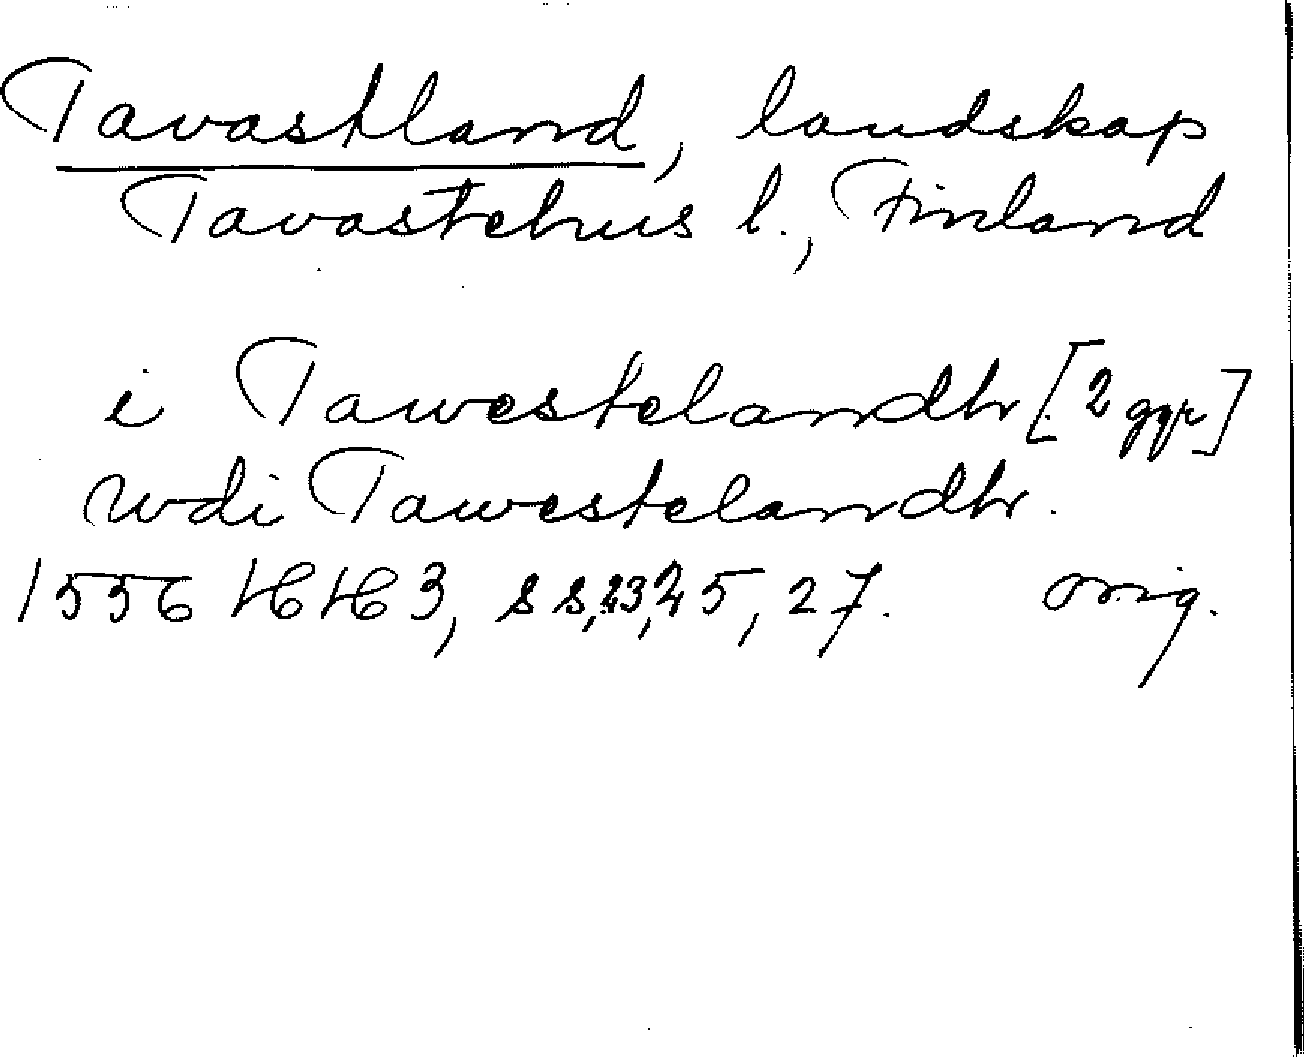 Tavastland, landskap
Tavastehus l., Finland
i Tawestelandh [2 ggr]
wdi Tawestelandh.
1556 HH 3, s s, 23, 25, 27. orig.